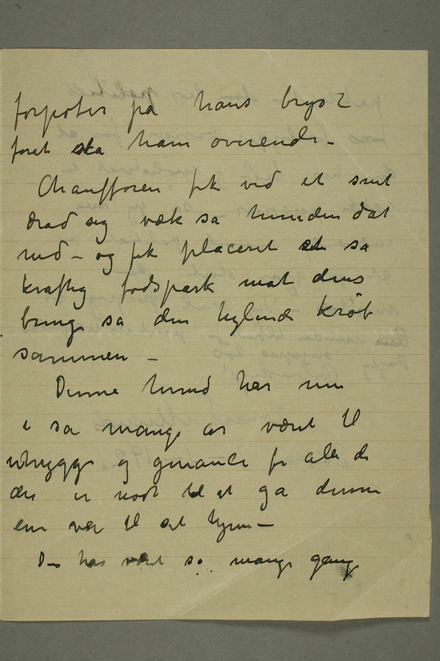 forpoter på hans bryst
foret slå ham overende -
Chaufføren fik ved et snit
drad sig væk så hunden dat
ned - og fik placeret et så
kraftig fodspark mat dens
bringe så den hylende krøb
sammen -
Denne hund har nu
i så mange år været til
uhygge og genance for alle de
der er nødt til at gå denne
ene vej til sit hjem -
Den har været så mange gang